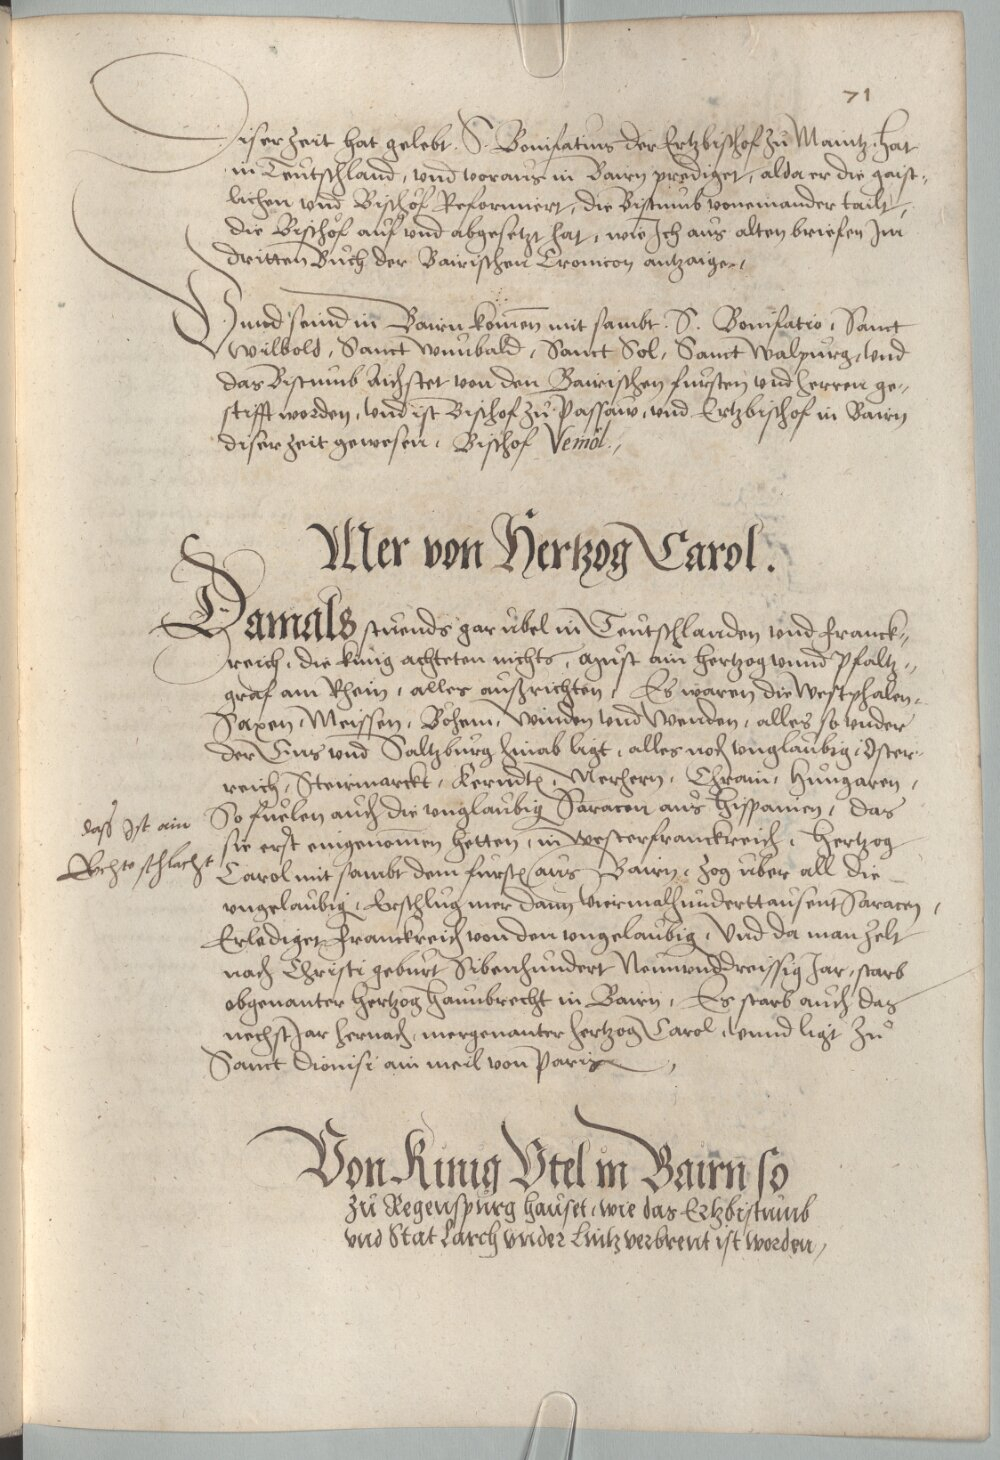 71
Diser zeit hat gelebt S. Bonifatius der Ertzbischof zů Maintz, hat
in Teutschland, vnd voraus in Bairn prediget, alda er die gaist-
lichen vnd Bischof Reformiert, die Bistumb voneinander tailt,
die Bischof auf vnd abgesetzt hat, wie Ich aus alten briefen Im
dritten Buch der Bairischen Cronicon antzaige.
Vnnd seind in Bairn komen mit sambt S. Bonifatio, Sanct
Wilbold, Sanct Wunbald, Sanct Sol, Sanct Walpurg, vnd
das Bistumb Aichstet von den Bairischen fursten vnd herren ge-
stifft worden, vnd ist Bischof zů Passaw, vnd Ertzbischof in Bairn
diser zeit gewesen, Bischof Vemol.
Mer von Hertzog Carol.
Damals stuends gar übel in Teutschlanden vnd franck-
reich, die künig achteten nichts, must ain Hertzog vnnd Pfaltz-
graf am Rhein, alles außrichten, Es waren die Westphalen,
Saxen, Meissen, Böhem, Winden vnd Wenden, alles so vnder
der Ens vnd Saltzburg hinab ligt, alles noch vnglaubig, Öster-
reich, Steirmarckt, Kerndten, Merhern, Chrain, Hungaren,
So fuelen auch die vnglaubig Saracen aus Hispanien, das
sie erst eingenomen hetten, in westerfranckreich, Hertzog
dass Ist ain
Rechte schlacht
Carol mit sambt dem fursten aus Bairn, zog über all die
vngelaubig, Erschlug mer dann viermalhunderttausent Saracen,
Erlediget Franckreich von den vngelaubig, Vnd da man zelt
nach Christi geburt Sibenhundert Neununddreissig Jar, starb
obgenanter Hertzog Haunbrecht in Bairn, Es starb auch das
nechst Jar hernach, mergenanter Hertzog Carol, vnnd ligt zů
Sanct Dionisi ain meil von Paris,
Von Künig Vtel in Bairn so
zů Regenspurg hauset, wie das Ertzbistumb
vnd Stat Larch vnder Lintz verbrent ist worden,